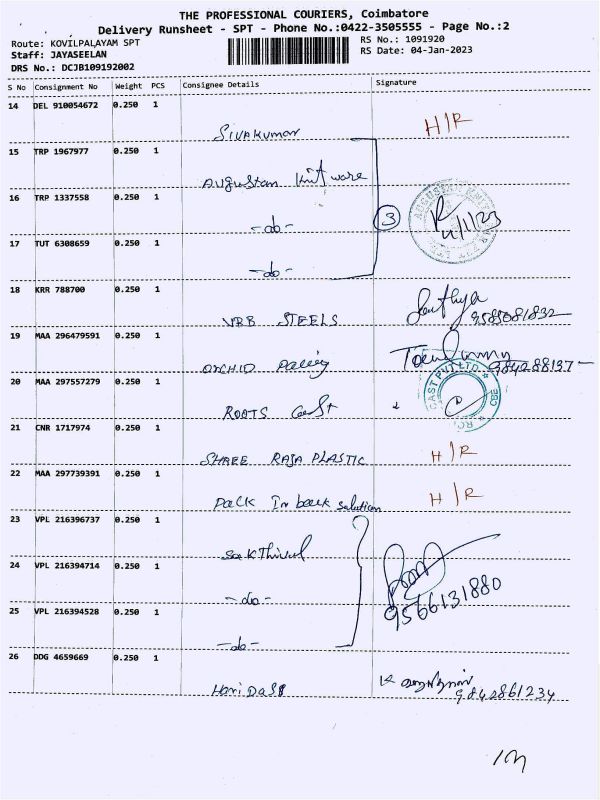 THE PROFESSIONAL COURIERS, Coimbatore
Delivery Runsheet - SPT - Phone No.:0422-3505555 - Page No.:2
Route: KOVILPALAYAM SPT
RS No.: 1091920
Staff: JAYASEELAN
RS Date: 04-Jan-2023
DRS No.: DCJB109192002
S No Consignment No Weight PCS Consignee Details Signature
14 DEL 910054672 0.250 1
Sivakumar H/R
15 TRP 1967977 0.250 1
Augustan Knit ware
16 TRP 1337558 0.250 1
-do- 3
17 TUT 6308659 0.250 1
-do-
18 KRR 788700 0.250 1
VBB STEELS
19 MAA 296479591 0.250 1
ORCHID
20 MAA 297557279 0.250 1
ROOTS Cast
CAST PVT LTD
CBE
21 CNR 1717974 0.250 1
SHREE RAJA PLASTIC H/R
22 MAA 297739391 0.250 1
Pack In back solution H/R
23 VPL 216396737 0.250 1
Sakthivel
24 VPL 216394714 0.250 1
-do- 9566131880
25 VPL 216394528 0.250 1
-do-
26 DDG 4659669 0.250 1
Hari Dass 9842861234